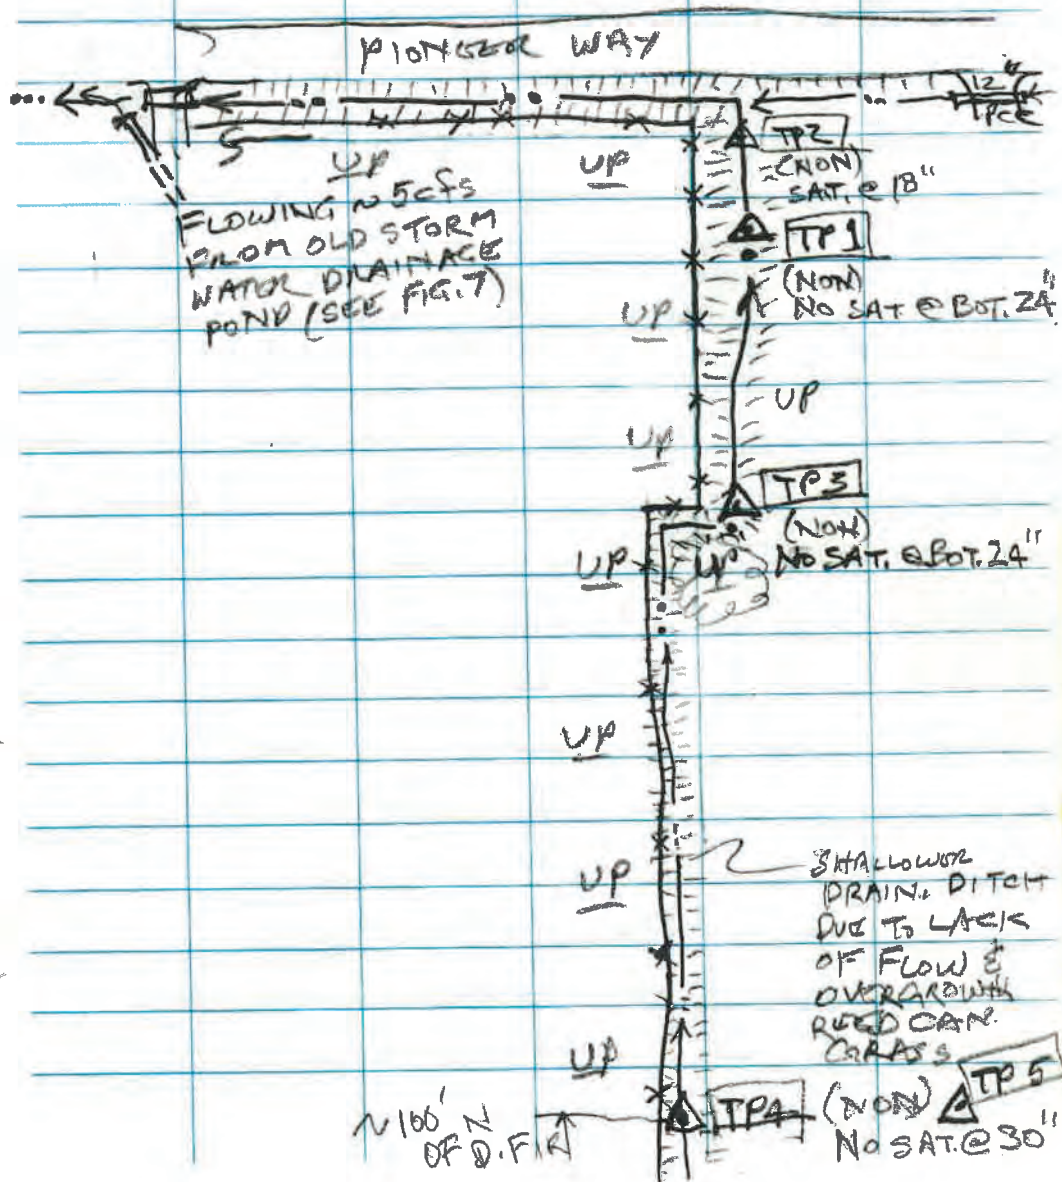 PIONEER WAY
12"
TP2
(NON)
SAT. @ 18"
UP
UP
FLOWING ~ 5cfs
FROM OLD STORM
WATER DRAINAGE
POND (SEE FIG. 7)
TP1
(NON)
NO SAT. @ BOT. 24"
UP
UP
UP
TP3
(NON)
NO SAT. @ BOT. 24"
UP
UP
UP
UP
SHALLOWER
DRAIN. DITCH
DUE TO LACK
OF FLOW &
OVERGROWTH
REED CAN.
GRASS
UP
~100' N
OF D.F.
TP4
(NON)
TP5
NO SAT. @ 30"